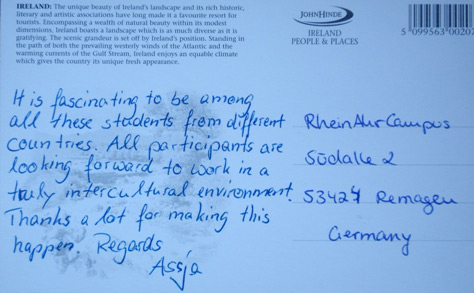 IRELAND: The unique beauty of Ireland's landscape and its rich historic,
literary and artistic associations have long made it a favourite resort for
tourists. Encompassing a wealth of natural beauty within its modest
dimensions, Ireland boasts a landscape which is as much diverse as it is
gratifying. The scenic grandeur is set off by Ireland's position. Standing in
the path of both the prevailing westerly winds of the Atlantic and the
warming currents of the Gulf Stream, Ireland enjoys an equable climate
which gives the country its unique fresh appearance.
JOHN HINDE
IRELAND
PEOPLE & PLACES
5 099563 00207
It is fascinating to be among
all these students from different
countries. All participants are
looking forward to work in a
truly intercultural environment.
Thanks a lot for making this
happen. Regards
Assja
RheinAhrCampus
Südalle 2
53424 Remagen
Germany